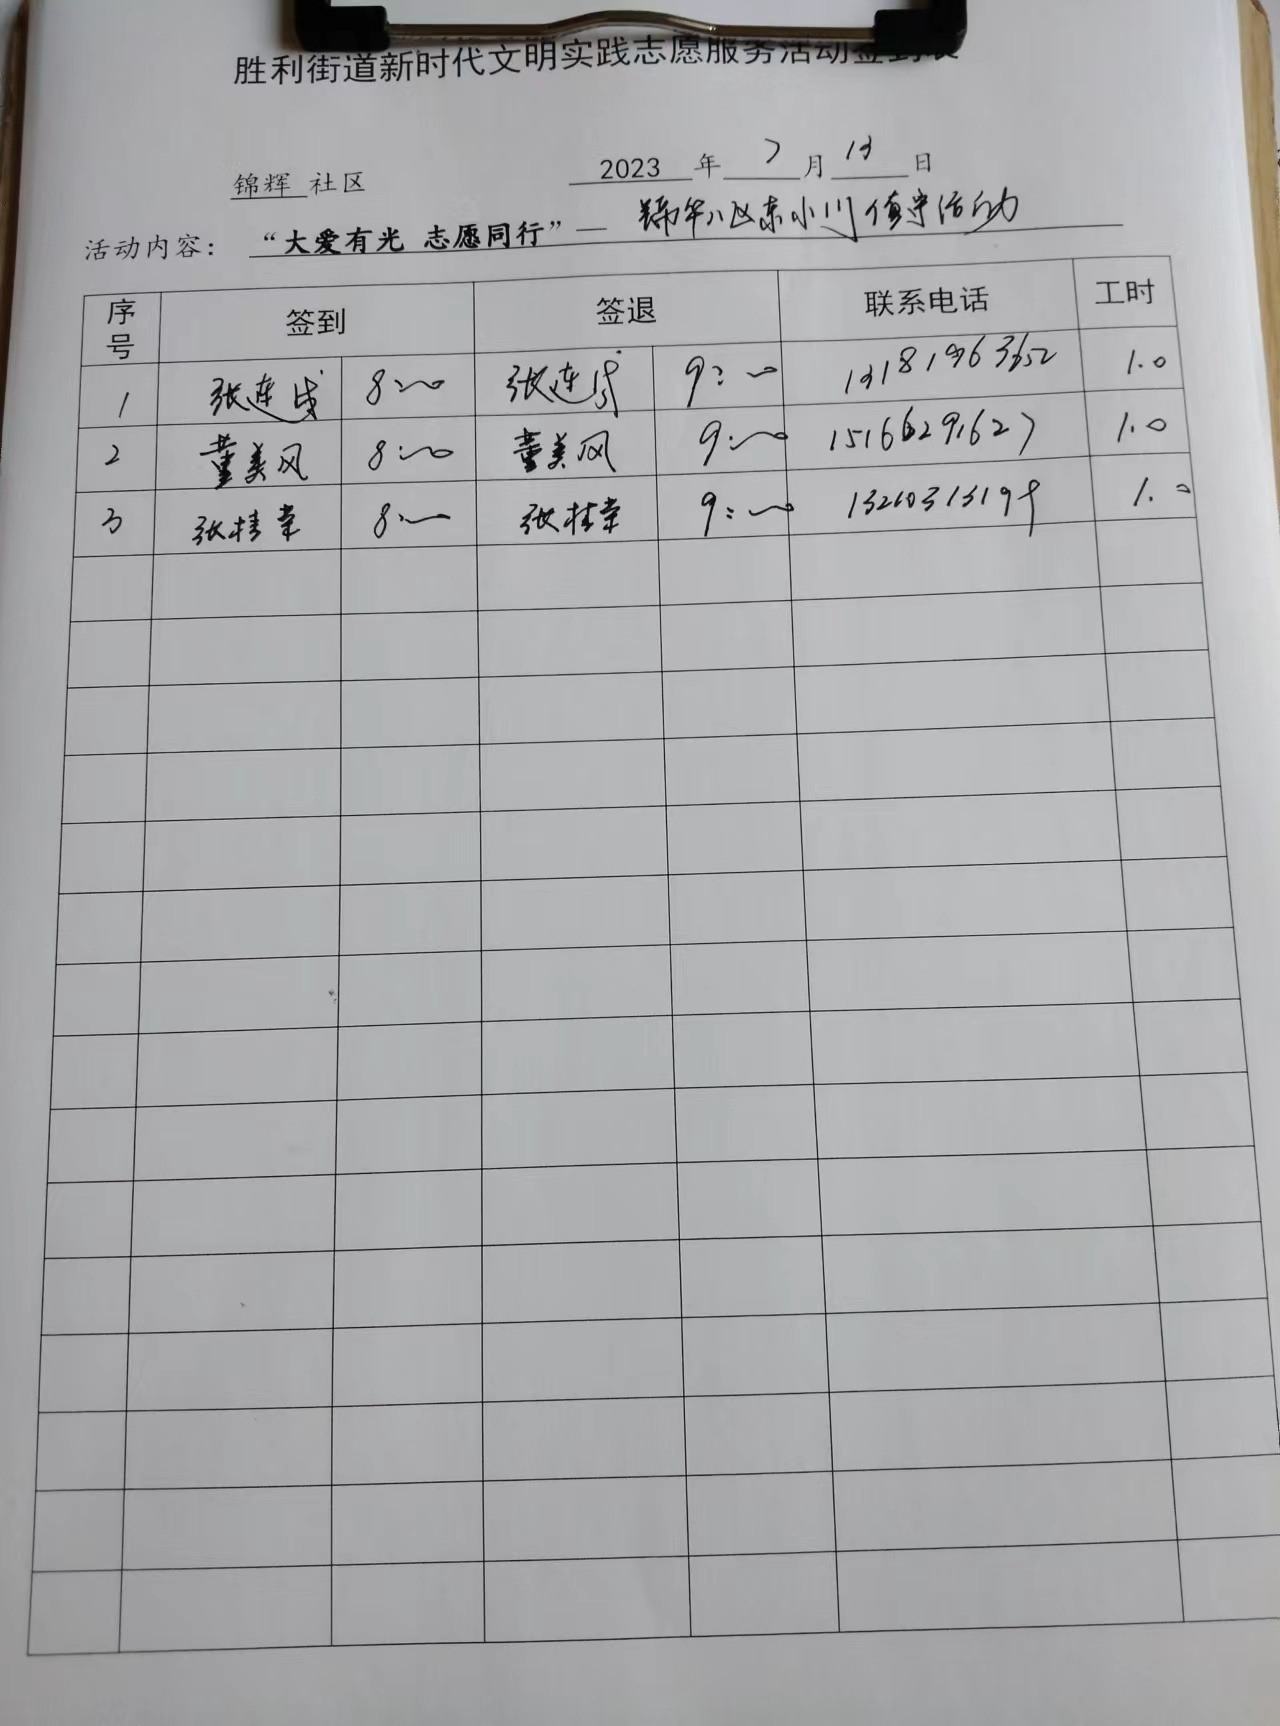 胜利街道新时代文明实践志愿服务活动签到表
锦辉 社区 2023 年 7 月 13 日
活动内容： “大爱有光 志愿同行”— 锦华八区东小川值守活动
序号 签到 签退 联系电话 工时
1 张连成 8:00 张连成 9:00 1.0
2 董美风 8:00 董美风 9:00 15166291627 1.0
3 张桂荣 8:00 张桂荣 9:00 1.0